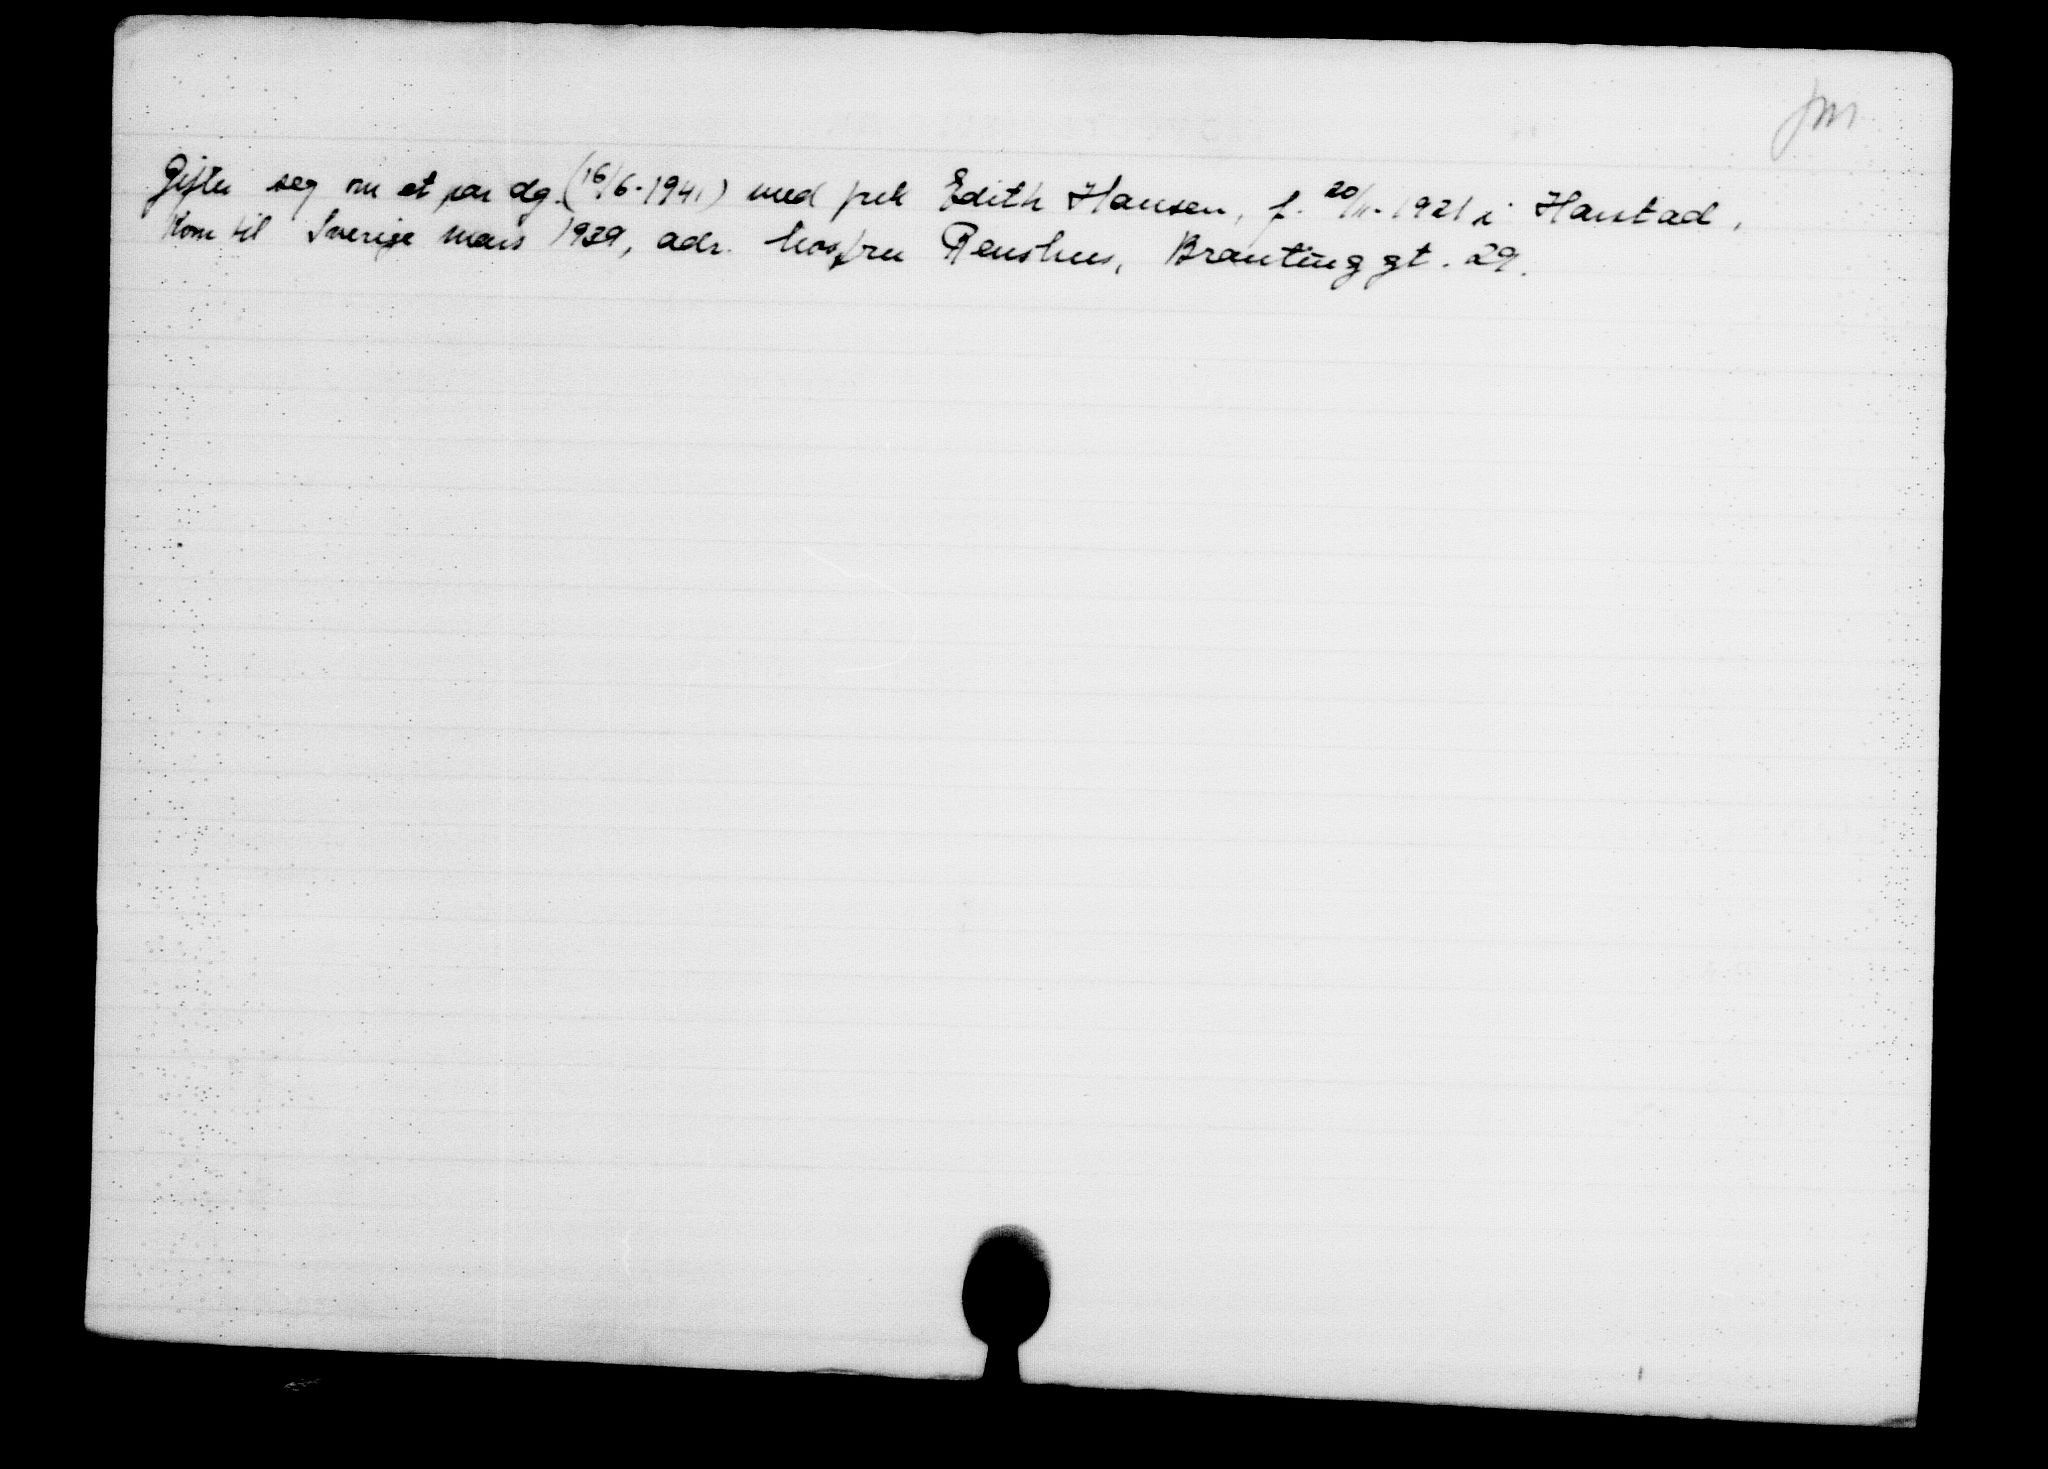 Jm
Gifter seg om et par dg. (16/6-1941) med frk Edith Hansen, f. 20/11-1921 i Harstad,
Kom til Sverige mars 1939, adr. hos fru Renshus, Brantinggt. 29.